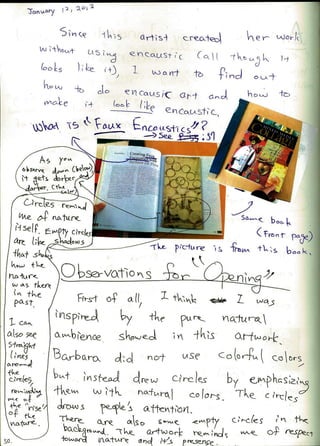 January 17, 2012
Since this artist created her work
without using encaustic (all though it
looks like it), I want to find out
how to do encausic art and how to
make it look like encaustic.
What is "Faux Encaustics"?
→ See Pg. :39
As you
observe down (below)
it gets darker and
darker. (the
circles)
Circles remind
me of nature
itself. Empty circles
are like shadows
that shows
how the
nature
was there
in the
past.
I can
also see
straight
lines
around
the
circles,
reminding
me of
the "rise"
of the
nature.
50.
Some book
(front page)
The picture is from this book.
Observations for "Opening"
First of all, I think I was
inspired by the pure natural
ambience showed in this artwork.
Barbara did not use colorful colors,
but instead drew circles by emphasizing
them with natural colors. The circles
draws people's attention.
There are also some empty circles in the
background. The artwork reminds me of respect
toward nature and it's presence.